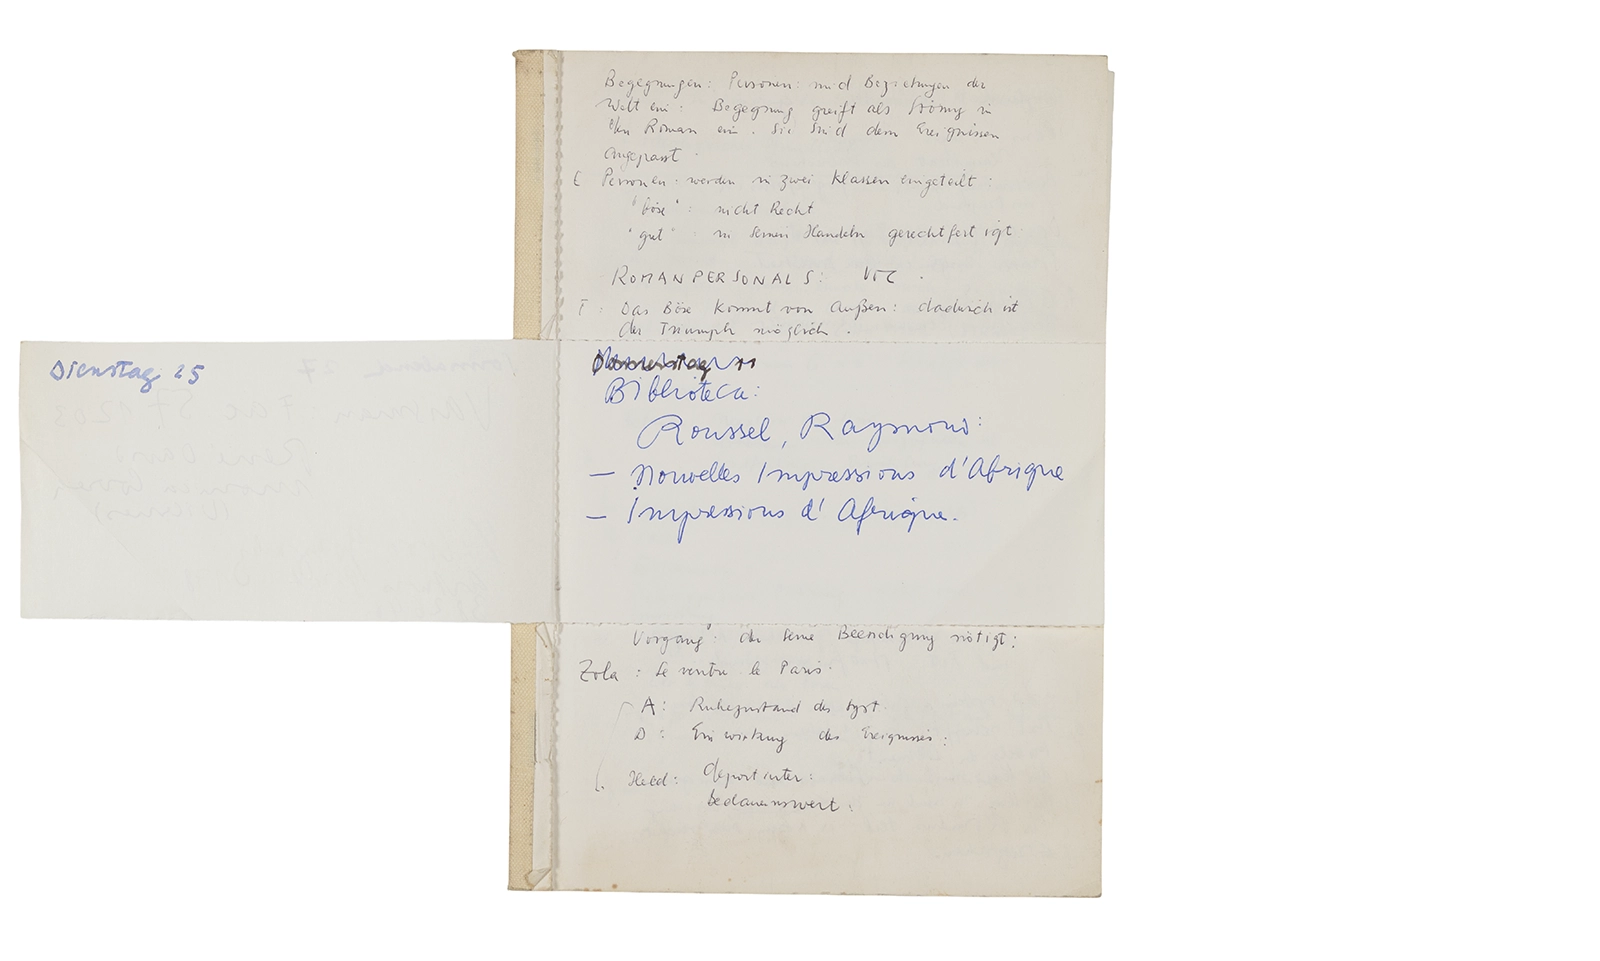 Begegnungen: Personen: und Beziehungen der
Welt ein: Begegnung greift als Störung in
den Roman ein. Sie sind dem Ereignissen
angepasst.
Personen: werden in zwei Klassen eingeteilt:
"böse": nicht Recht
"gut": in seinem Handeln gerechtfertigt.
ROMANPERSONALS:
T: Das Böse kommt von Außen: dadurch ist
der Triumph möglich.
Dienstag 25
Donnerstag
Biblioteca:
Roussel, Raymond:
— Nouvelles Impressions d'Afrique
— Impressions d'Afrique.
Vorgang: der seine Beendigung nötigt:
Zola: Le ventre de Paris.
A: Ruhezustand des
D: Einwirkung des Ereignisses:
Held:
bedauernswert: